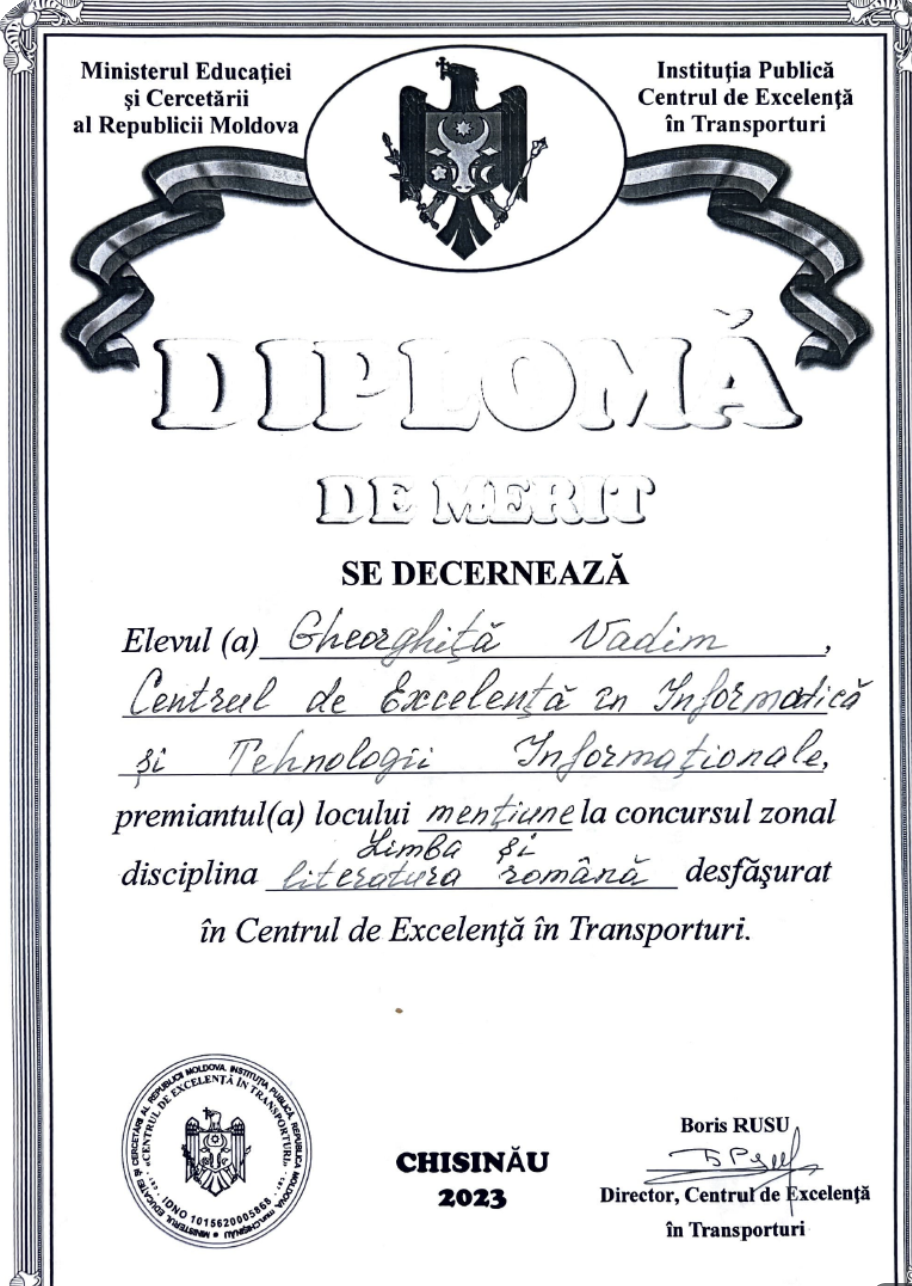 Ministerul Educaţiei
şi Cercetării
al Republicii Moldova
Instituţia Publică
Centrul de Excelenţă
în Transporturi
DIPLOMĂ
DE MERIT
SE DECERNEAZĂ
Elevul (a) Gheorghiţă Vadim,
Centrul de Excelenţă în Informatică
şi Tehnologii Informaţionale,
premiantul(a) locului menţiune la concursul zonal
disciplina Limba şi literatura română desfăşurat
în Centrul de Excelenţă în Transporturi.
MINISTERUL EDUCAŢIEI ŞI CERCETĂRII AL REPUBLICII MOLDOVA. INSTITUŢIA PUBLICĂ. REPUBLICA MOLDOVA, mun.CHIŞINĂU
«CENTRUL DE EXCELENŢĂ ÎN TRANSPORTURI»
IDNO 1015620005868
CHISINĂU
2023
Boris RUSU
Director, Centrul de Excelenţă
în Transporturi